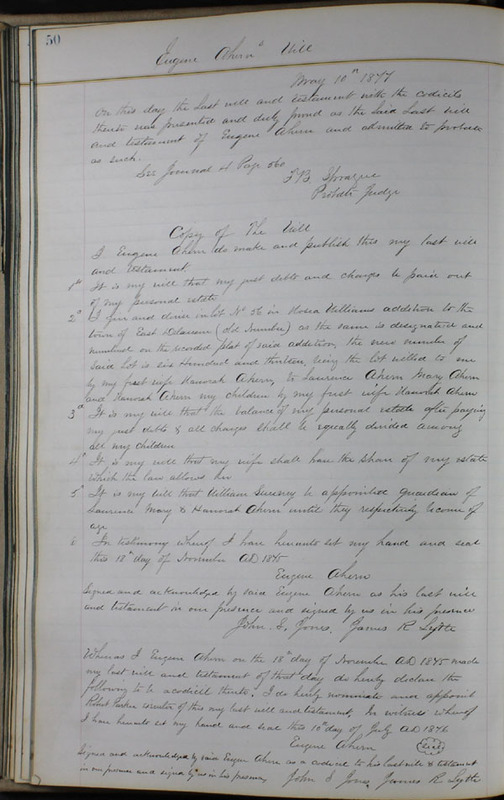 50
Eugene Ahern's Will
May 10th 1877
On this day the last will and testament with the codicils
thereto were presented and duly proved as the said last will
and testament of Eugene Ahern and admitted to probate
as such.
See Journal 4 Page 560
F B Sprague
Probate Judge
Copy of The Will
I Eugene Ahern do make and publish this my last will
and testament
1st It is my will that my just debts and charges be paid out
of my personal estate
2d I give and devise in lot No 56 in Hosea Williams addition to the
town of East Delaware (old number) as the same is designated and
numbered on the recorded plat of said addition, the new number of
said lot is six hundred and thirteen, being the lot willed to me
by my first wife Hanorah Ahern, to Laurence Ahern Mary Ahern
and Hanorah Ahern my children by my first wife Hanorah Ahern
3d It is my will that the balance of my personal estate after paying
my just debts & all charges shall be equally divided among
all my children
4th It is my will that my wife shall have the share of my estate
which the law allows her
5th It is my will that William Sweeney be appointed guardian of
Laurence Mary & Hanorah Ahern until they respectively become of
age
6 In testimony whereof I have hereunto set my hand and seal
this 18th day of November AD 1875
Eugene Ahern
Signed and acknowledged by said Eugene Ahern as his last will
and testament in our presence and signed by us in his presence
John S. Jones. James R Lytle
Whereas I Eugene Ahern on the 18th day of November AD 1875 made
my last will and testament of that day do hereby declare the
following to be a codicil thereto; I do hereby nominate and appoint
Robert executor of this my last will and testament. In witness whereof
I have hereunto set my hand and seal this 10th day of July AD 1876
Eugene Ahern (seal)
Signed and acknowledged by said Eugene Ahern as a codicil to his last will & testament
in our presence and signed by us in his presence John S Jones James R Lytle